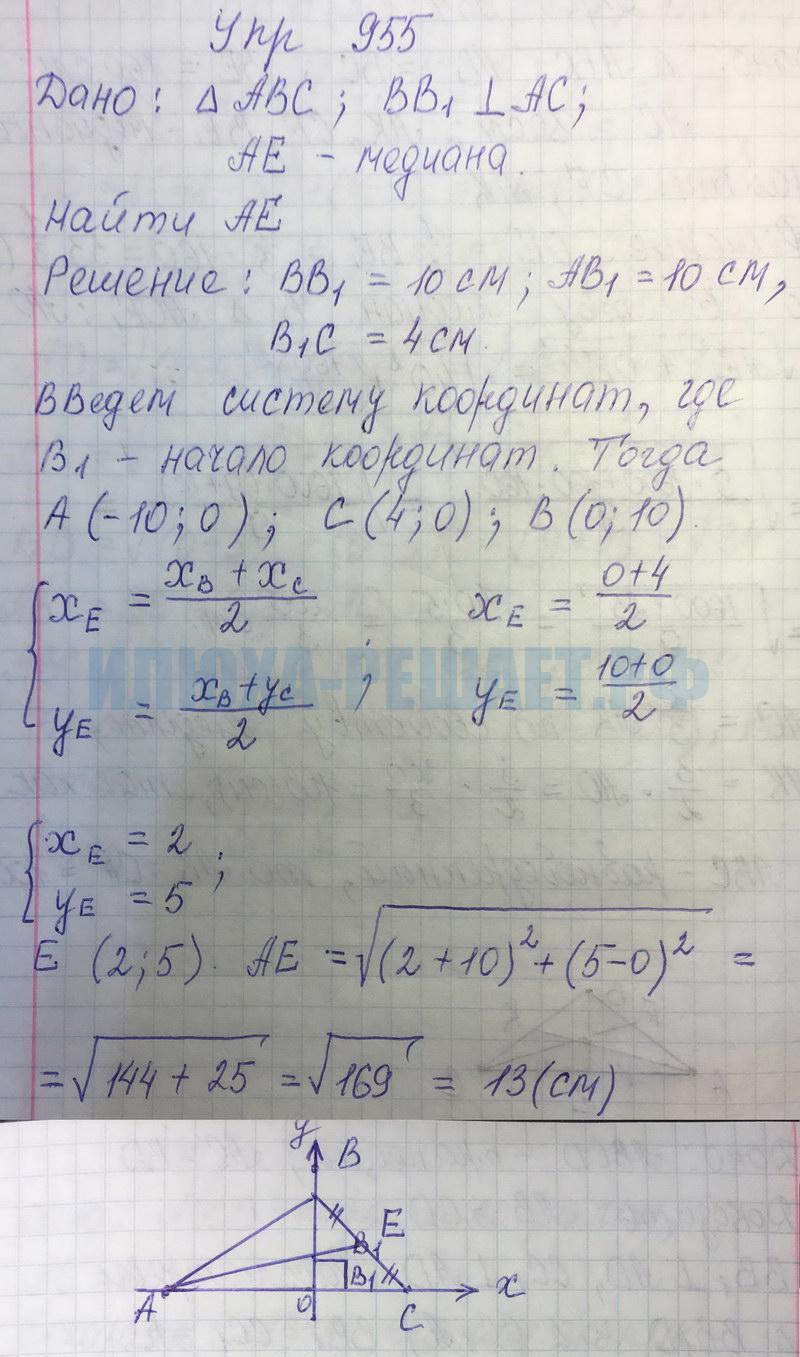 Упр 955
Дано: △ ABC; BB₁ ⊥ AC;
AE - медиана.
Найти AE
Решение: BB₁ = 10 см; AB₁ = 10 см,
B₁C = 4 см.
ВВедем систему координат, где
B₁ - начало координат. Тогда
A (-10; 0); C (4; 0); B (0; 10).
{ x_E = (x_B + x_C)/2 x_E = (0+4)/2
ИЛЮХА-РЕШАЕТ.РФ
y_E = (x_B + y_C)/2 ; y_E = (10+0)/2
{ x_E = 2
y_E = 5 ;
E (2; 5). AE = √((2+10)² + (5-0)²) =
= √(144 + 25) = √169 = 13 (см)
y B
E
B₁
B₁
A O C x